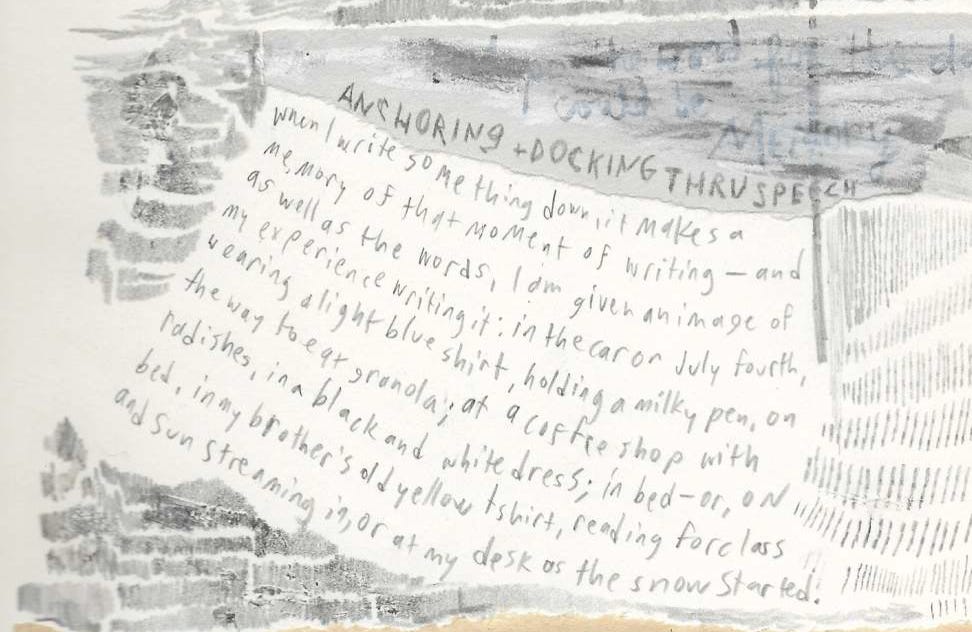 the word for this
I could be
Memory
ANCHORING + DOCKING THRU SPEECH
when I write something down, it makes a
memory of that moment of writing — and
as well as the words, I am given an image of
my experience writing it: in the car on July fourth,
wearing a light blue shirt, holding a milky pen, on
the way to eat granola; at a coffee shop with
radishes, in a black and white dress; in bed—or, on
bed, in my brother's old yellow tshirt, reading for class
and sun streaming in, or at my desk as the snow started.